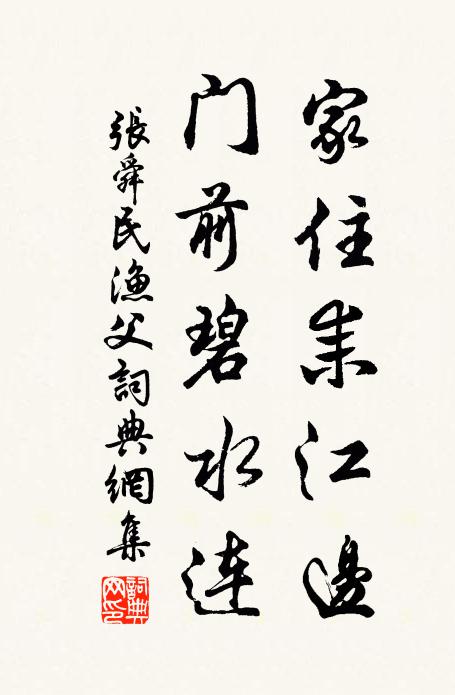 家住耒江邊
门前碧水连
張舜民漁父詞典網集
詞典网印